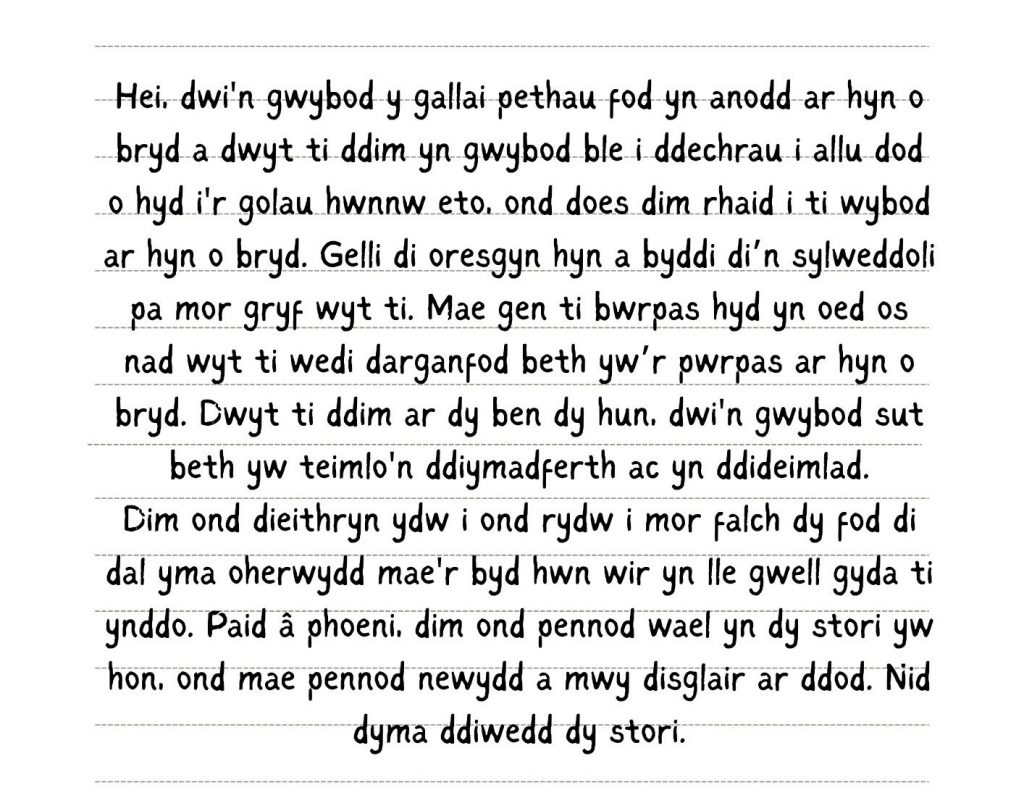 Hei, dwi'n gwybod y gallai pethau fod yn anodd ar hyn o
bryd a dwyt ti ddim yn gwybod ble i ddechrau i allu dod
o hyd i'r golau hwnnw eto, ond does dim rhaid i ti wybod
ar hyn o bryd. Gelli di oresgyn hyn a byddi di’n sylweddoli
pa mor gryf wyt ti. Mae gen ti bwrpas hyd yn oed os
nad wyt ti wedi darganfod beth yw’r pwrpas ar hyn o
bryd. Dwyt ti ddim ar dy ben dy hun, dwi'n gwybod sut
beth yw teimlo'n ddiymadferth ac yn ddideimlad.
Dim ond dieithryn ydw i ond rydw i mor falch dy fod di
dal yma oherwydd mae'r byd hwn wir yn lle gwell gyda ti
ynddo. Paid â phoeni, dim ond pennod wael yn dy stori yw
hon, ond mae pennod newydd a mwy disglair ar ddod. Nid
dyma ddiwedd dy stori.